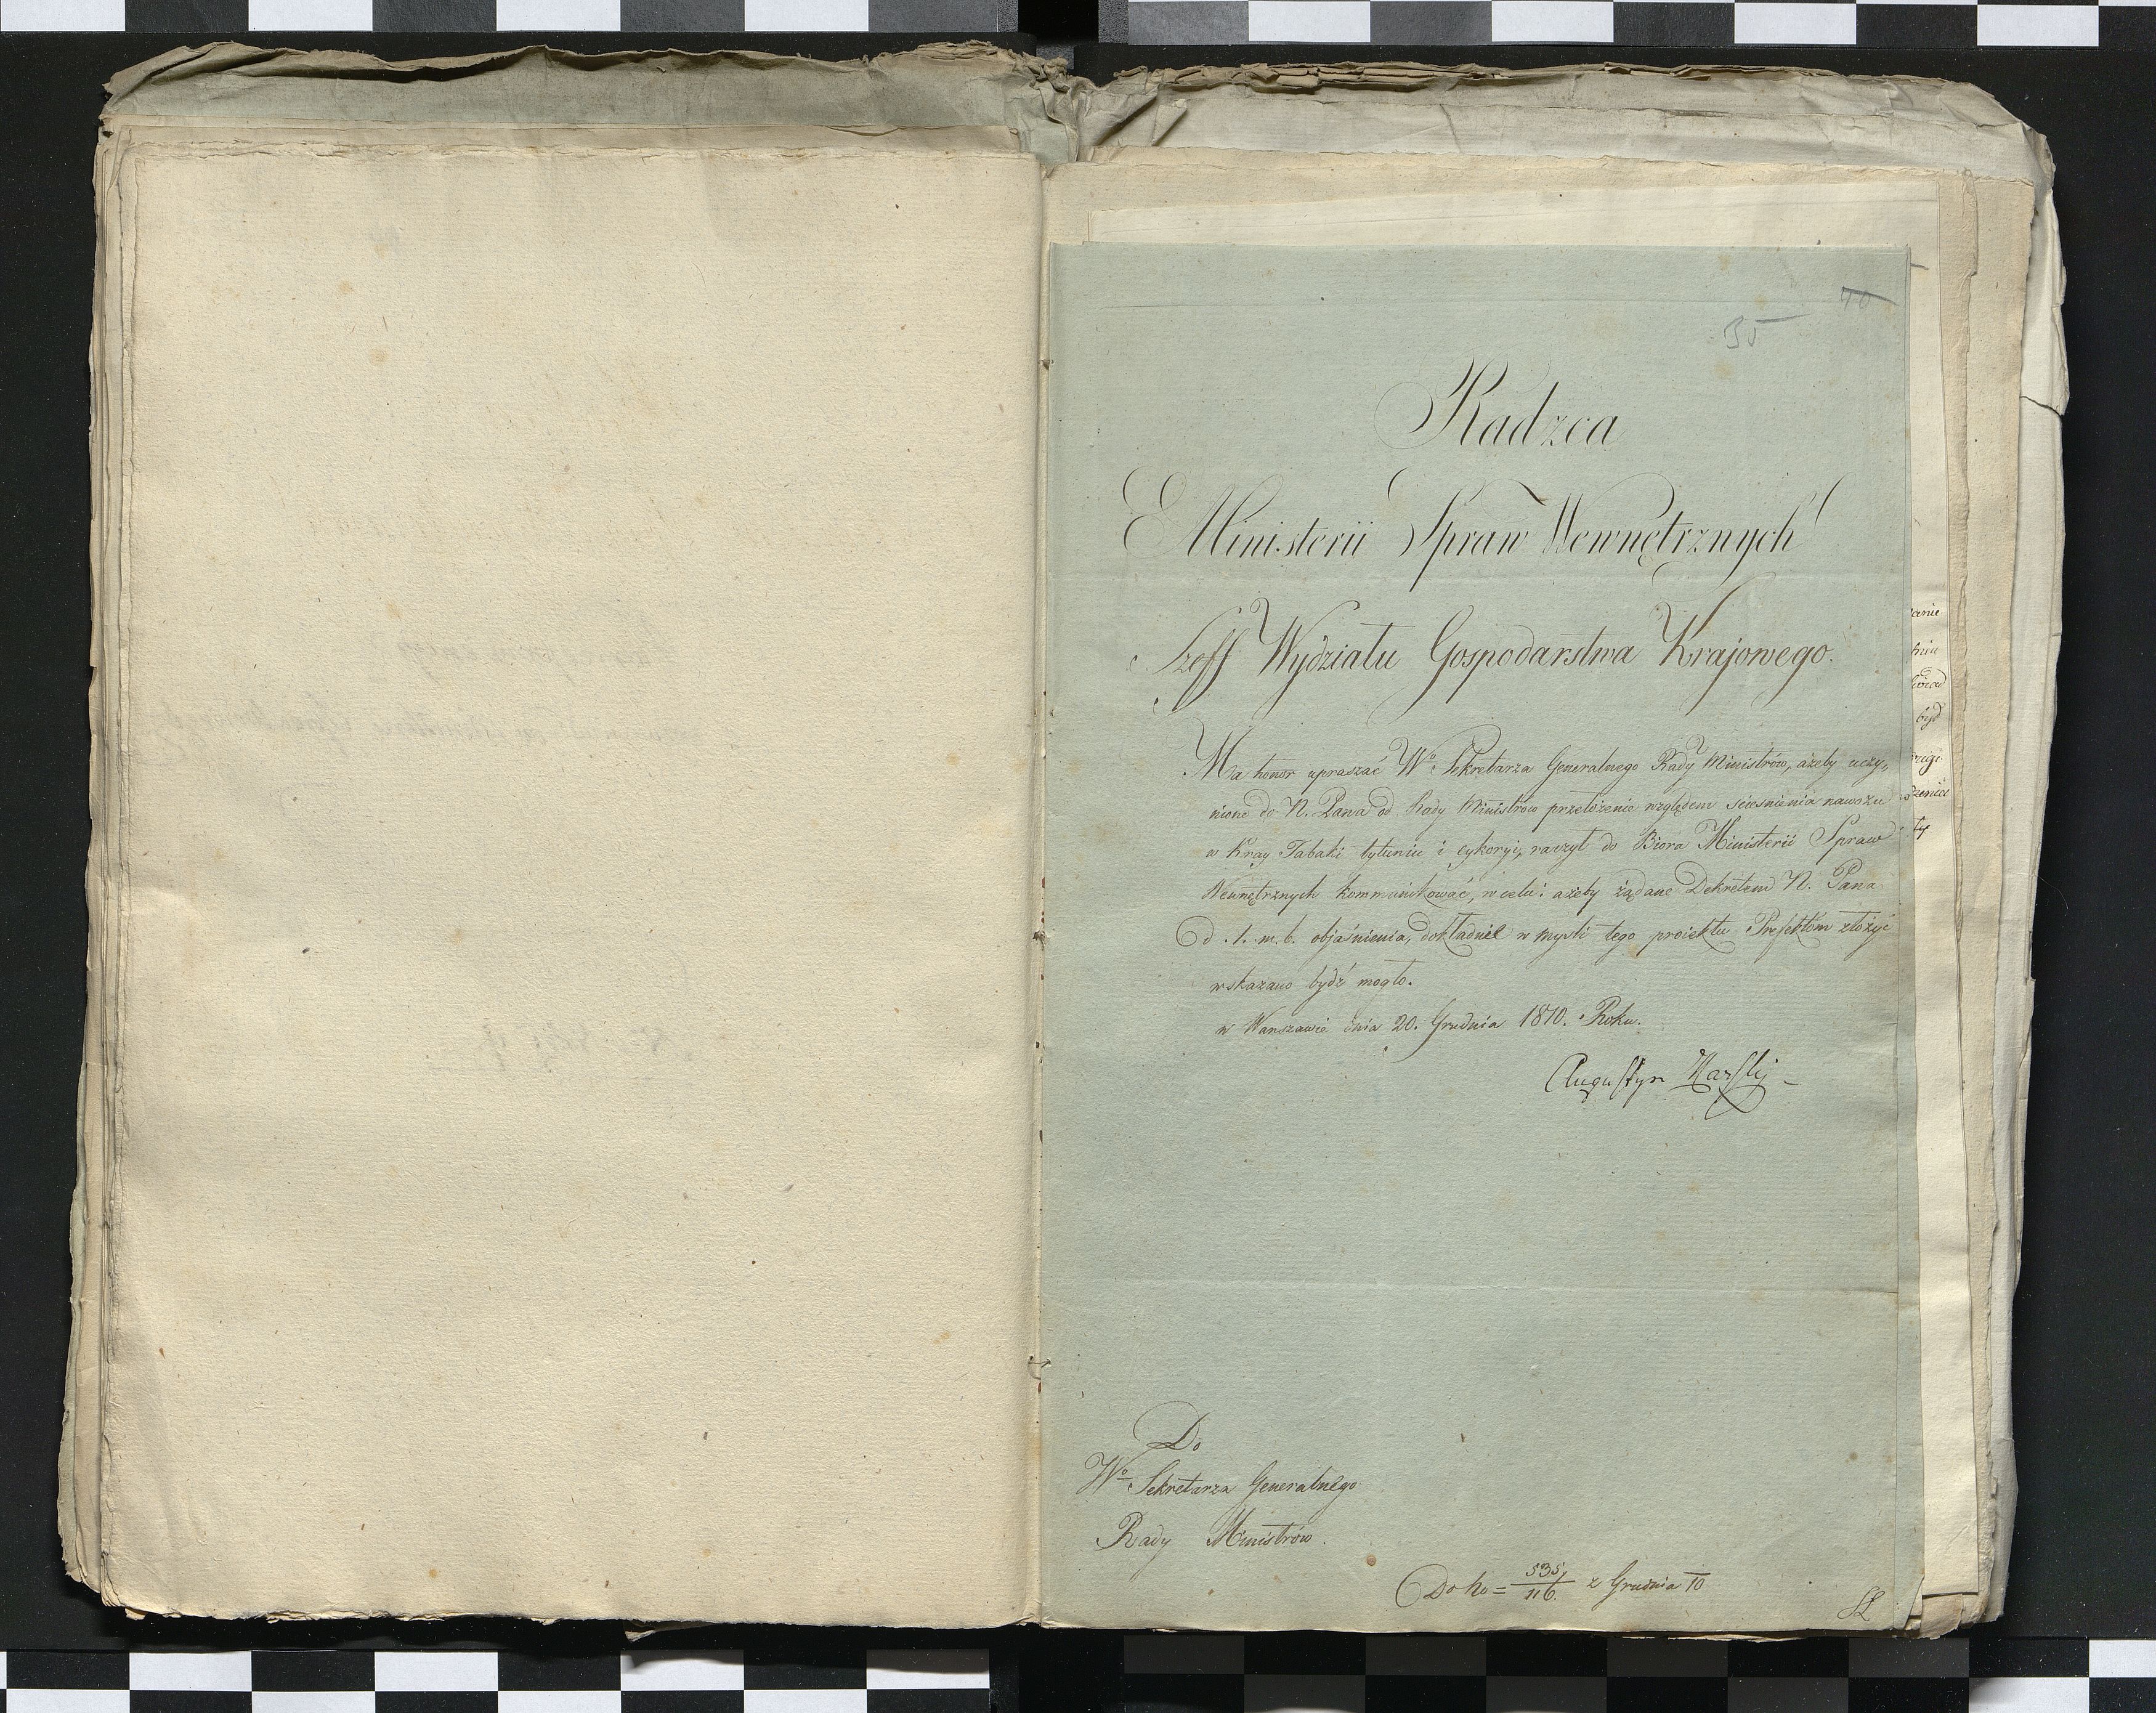 35
Radzca
Ministerii Spraw Wewnętrznych
Szeff Wydziału Gospodarstwa Krajowego.
Ma honor upraszać Wo Sekretarza Generalnego Rady Ministrów, ażeby uczy„
nione do N. Pana od Rady Ministrów przełożenie względem ścieśnienia nawozu
w Kray Tabaki tytuniu i cykoryi, raczył do Biora Ministerii Spraw
Wewnętrznych kommunikować, w celu: ażeby żądane Dekretem N. Pana
d. 1. m. b. objaśnienia, dokładniéé w myśli tego proiektu Prefektom złożyć
wskazano bydź mogło.
w Warszawie dnia 20. Grudnia 1810. Roku.
Augustyn
Do
Wo Sekretarza Generalnego
Rady Ministrów.
Do No = 535/116. z Grudnia 10